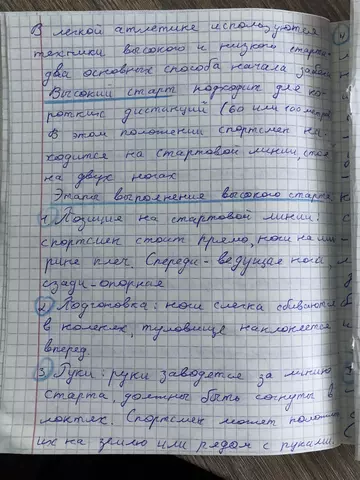 В легкой атлетике используются
техники высокого и низкого старта
два основных способа начала забега
Высокий старт подходит для ко-
ротких дистанций (60 или 100 метров)
В этом положении спортсмен на-
ходится на стартовой линии, стоя
на двух ногах
Этапы выполнение высокого старта:
1 Позиция на стартовой линии:
спортсмен стоит прямо, ноги на ши-
рине плеч. Спереди - ведущая нога
сзади - опорная
2 Подготовка: ноги слегка сгибаются
в коленях, туловище наклоняется
вперед.
3 Руки: руки заводятся за линию
старта, должны быть согнуты в
локтях. Спортсмен может положить
их на землю или рядом с руками.